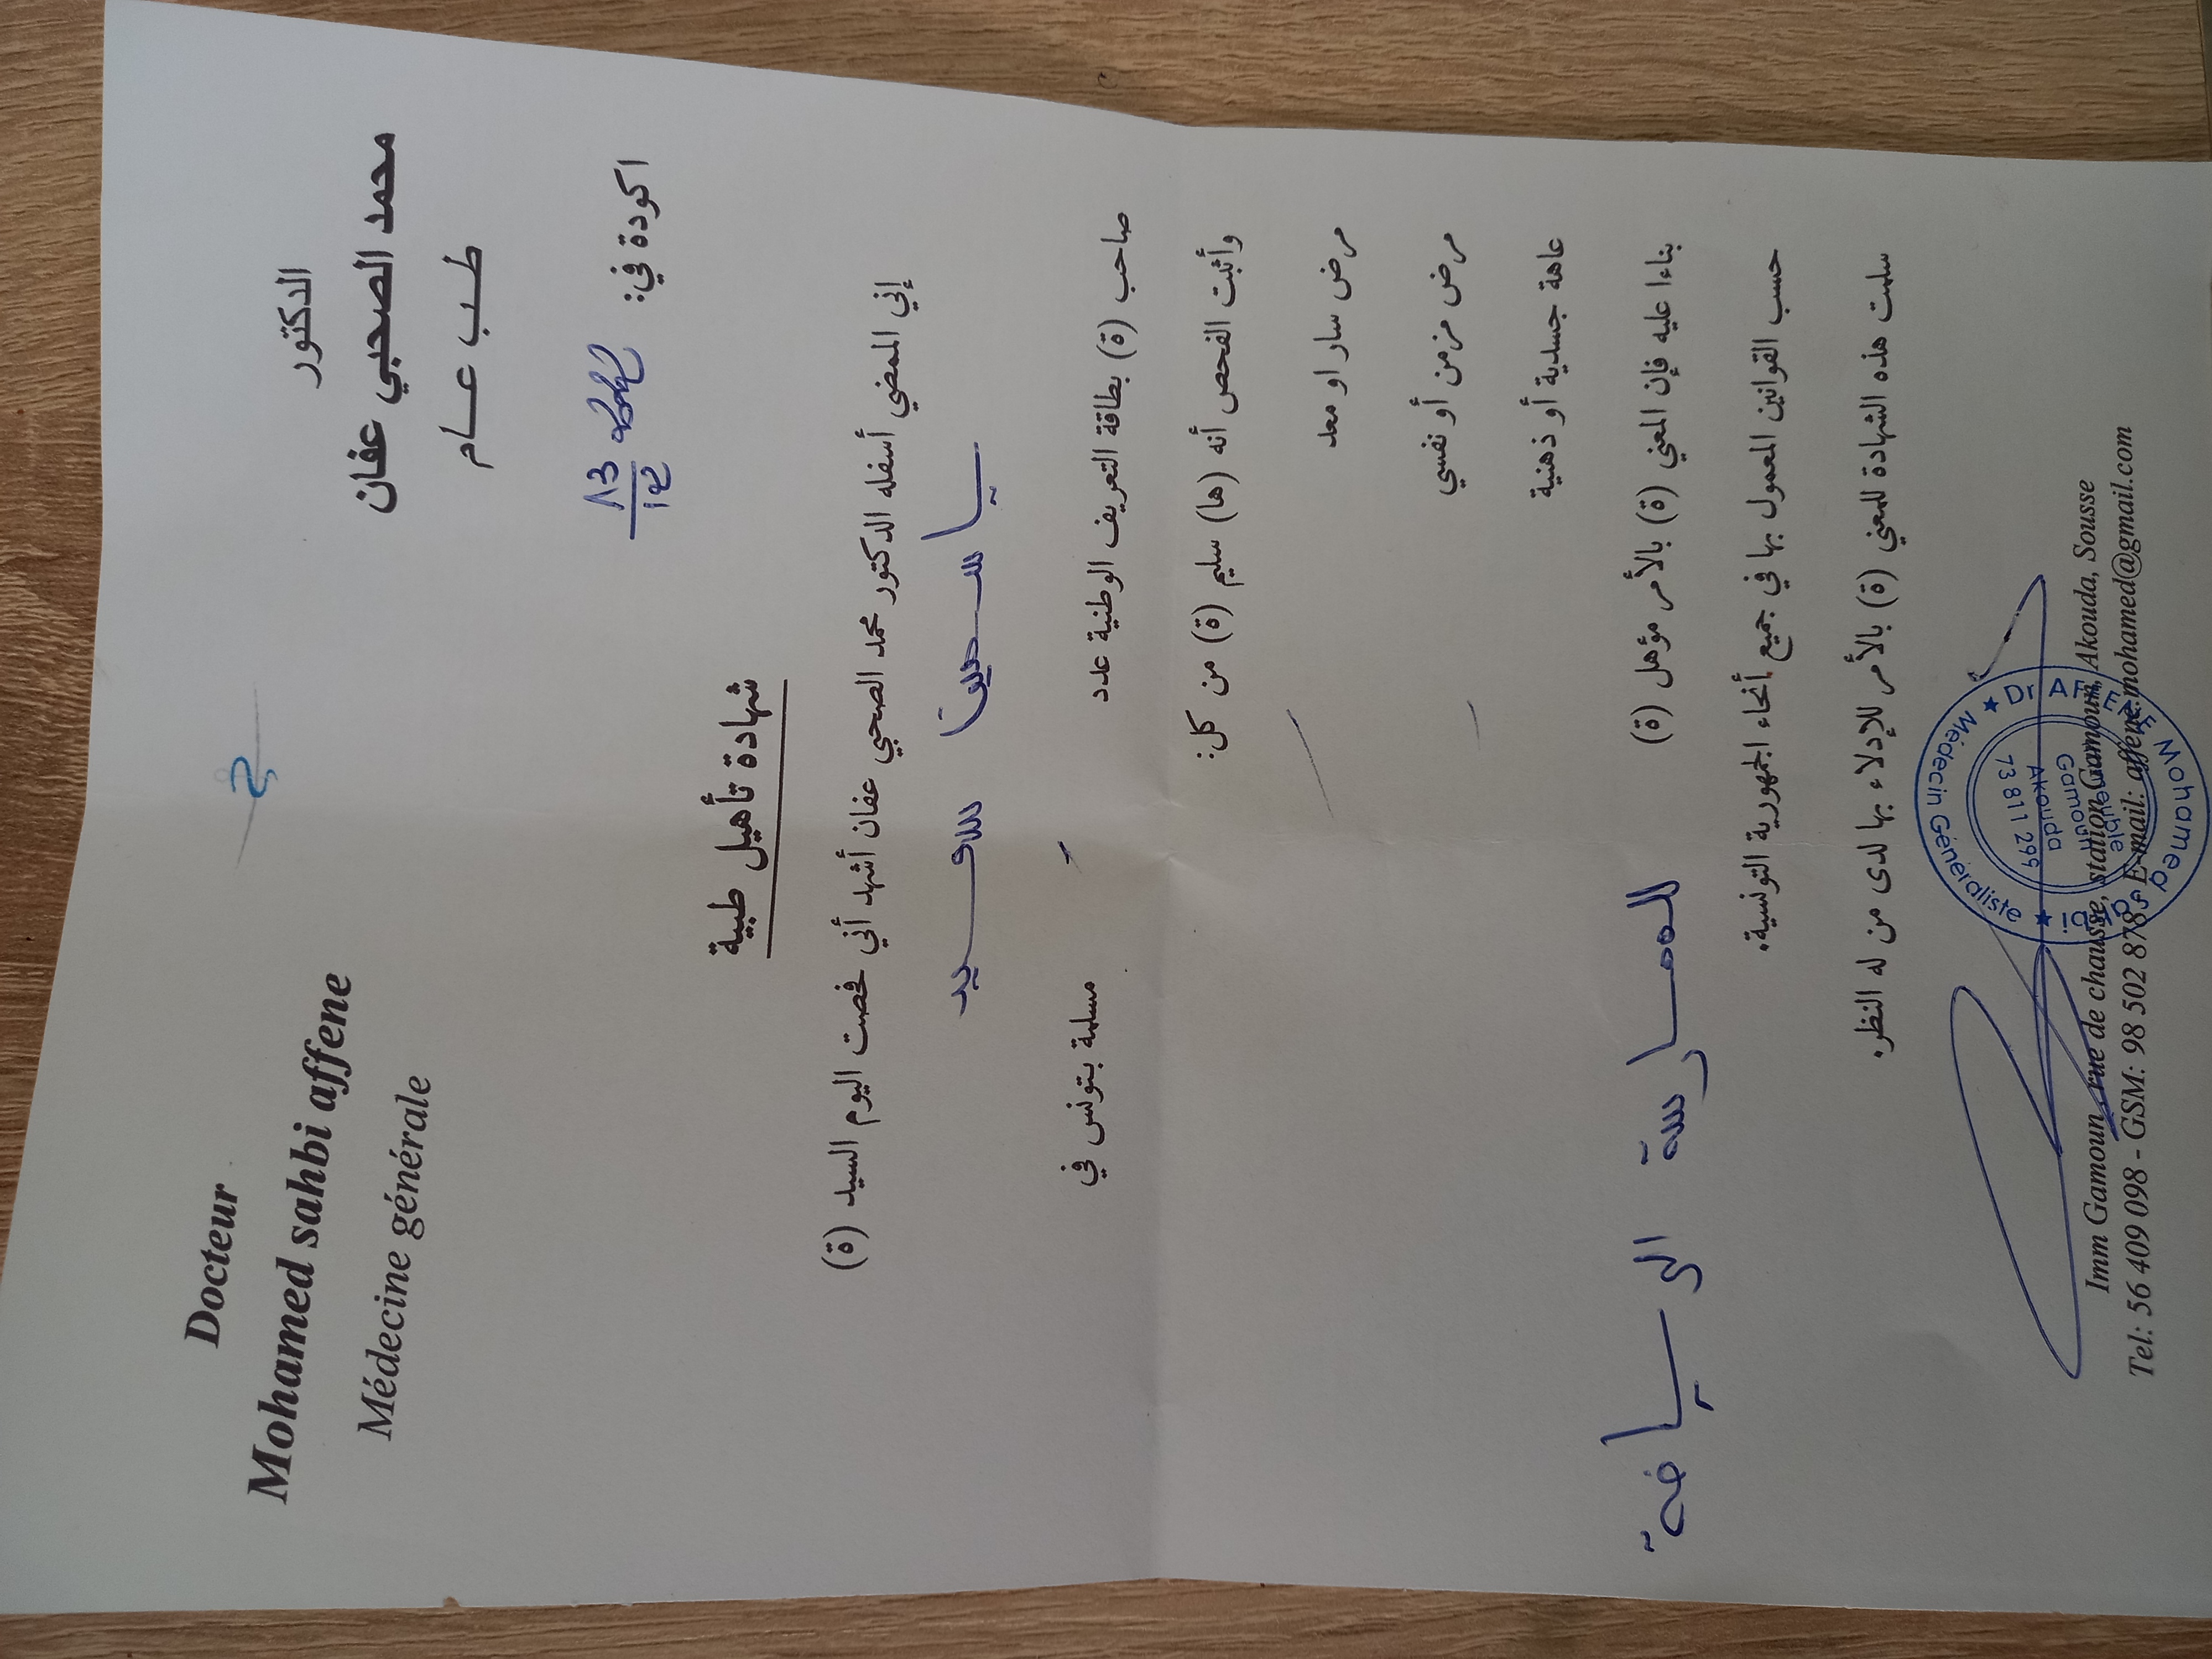 Docteur
Mohamed sahbi affene
Médecine générale
الدكتور
محمد الصحبي عفان
طب عام
اكودة في:
شهادة تأهيل طبية
إني الممضي أسفله الدكتور محمد الصحبي عفان أشهد أني فحصت اليوم السيد (ة)
صاحب (ة) بطاقة التعريف الوطنية عدد مسلمة بتونس في
وأثبت الفحص أنه (ها) سليم (ة) من كل:
مرض سار او معد
مرض مزمن أو نفسي
عاهة جسدية أو ذهنية
بناءا عليه فإن المعني (ة) بالأمر مؤهل (ة) لممارسة الرياضة
حسب القوانين المعمول بها في جميع أنحاء الجمهورية التونسية.
سلمت هذه الشهادة للمعني (ة) بالأمر للإدلاء بها لدى من له النظر.
Imm Gamoun, rue de chausse, station Gamoun, Akouda, Sousse
Tel: 56 409 098 - GSM: 98 502 878 - E-mail: affene.mohamed@gmail.com
Dr AFFENE Mohamed
Médecin Généraliste
Gamoun
Akouda
73 811 299